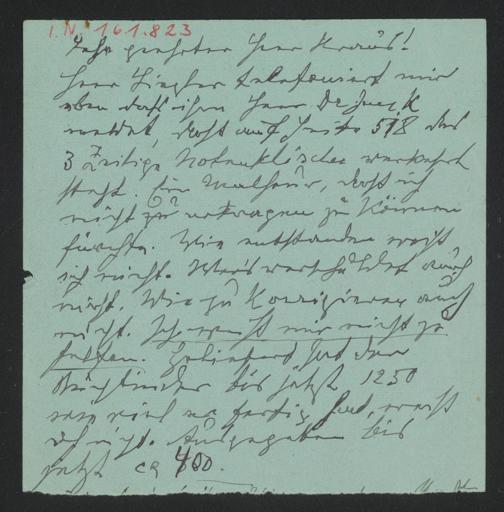 I.N. 161.823
Sehr geehrter Herr Kraus!
Herr Ziegler telefoniert mir
eben daß ihm Herr Dr Jurck
meldet, daß auf Seite 518 das
3 Zeilige Notenklischee verkehrt
steht. Ein Malheur, daß ich
nicht zu ertragen zu können
fürchte. Wie entstanden weiß
ich nicht. Wer's verschuldet auch
nicht. Wie zu korrigieren auch
nicht. Ich weiß mir nicht zu
helfen. Geliefert hat der
Buchbinder bis jetzt 1250
was viel er fertig hat, weiß
ich nicht. Ausgegeben bis
jetzt ca 400.